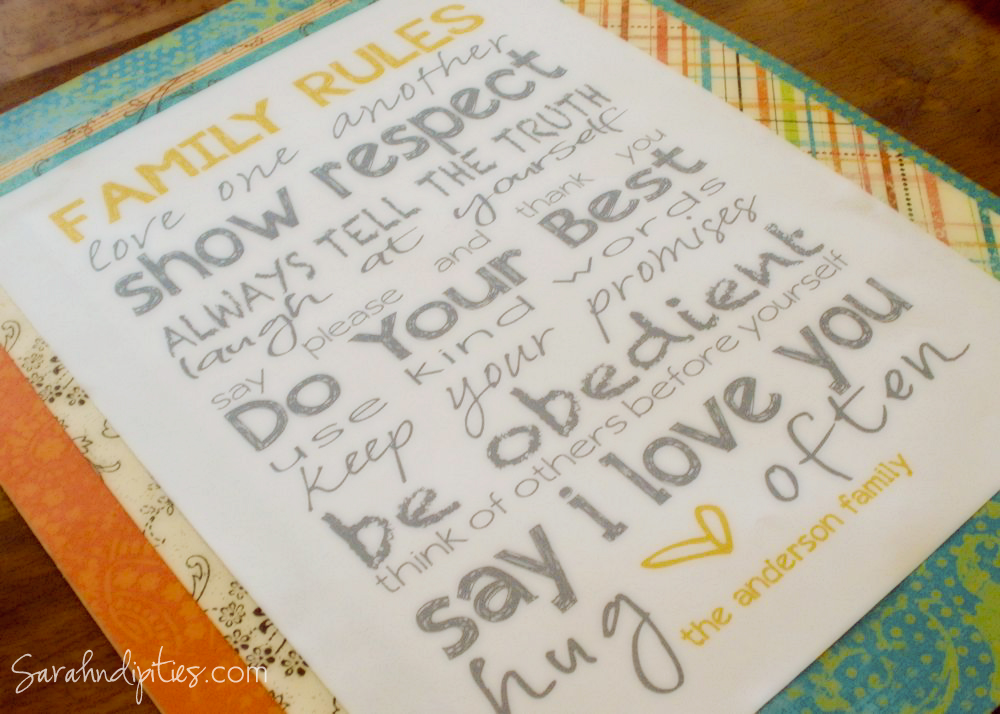 FAMILY RULES
love one another
show respect
ALWAYS TELL THE TRUTH
laugh at yourself
say please and thank you
Do Your Best
use kind words
keep your promises
be obedient
think of others before yourself
say i love you
hug often
the anderson family
Sarahndipities.com